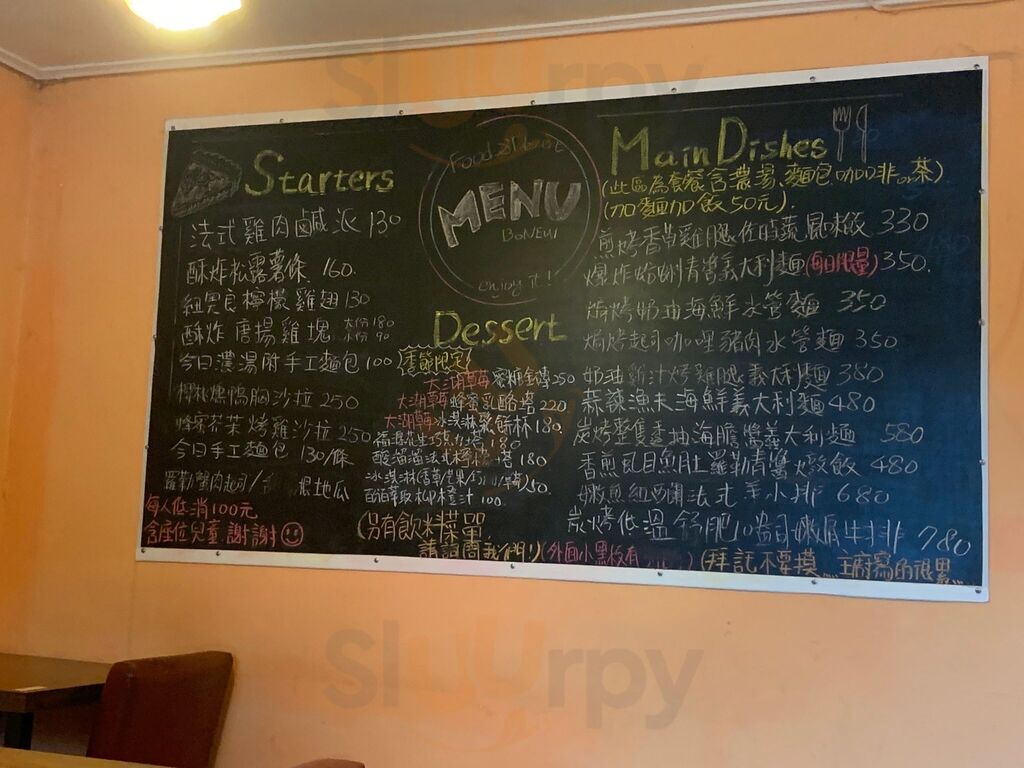 Food &
MENU
enjoy it!
Starters
法式雞肉鹹派 130
酥炸松露薯條 160.
紐奧良檸檬雞翅 130
酥炸唐揚雞塊 大份 180
小份 90
今日濃湯附手工麵包 100
櫻桃燻鴨胸沙拉 250
蜂蜜芥茉烤雞沙拉 250
今日手工麵包 130/條
羅勒蟹肉起司/ 地瓜
每人低消100元
含座位兒童 謝謝
Dessert
季節限定
大湖草莓蜜糖 250
大湖草莓蜂蜜乳酪塔 220
大湖草莓冰淇淋聖餅杯 180
花生巧克力塔 180
酸溜溜法式檸檬塔 180
冰淇淋 250.
100
(另有飲料菜單
請詢問我們!)(外面小黑板有 )
Main Dishes
(此區為套餐含濃湯、麵包、咖啡or茶)
(加麵加飯50元)
煎烤香草雞腿佐時蔬風味飯 330
爆炸蛤蜊青醬義大利麵(每日限量)350.
焗烤奶油海鮮水管麵 350
焗烤起司咖哩豬肉水管麵 350
奶油雞汁烤雞腿義大利麵 380
蒜辣漁夫海鮮義大利麵 480
炭烤整隻透抽海膽醬義大利麵 580
香煎虱目魚肚羅勒青醬燉飯 480
嫩煎紐西蘭法式羊小排 680
炭烤低溫舒肥10盎司嫩肩牛排 780
(拜託不要摸....主廚寫的很累...